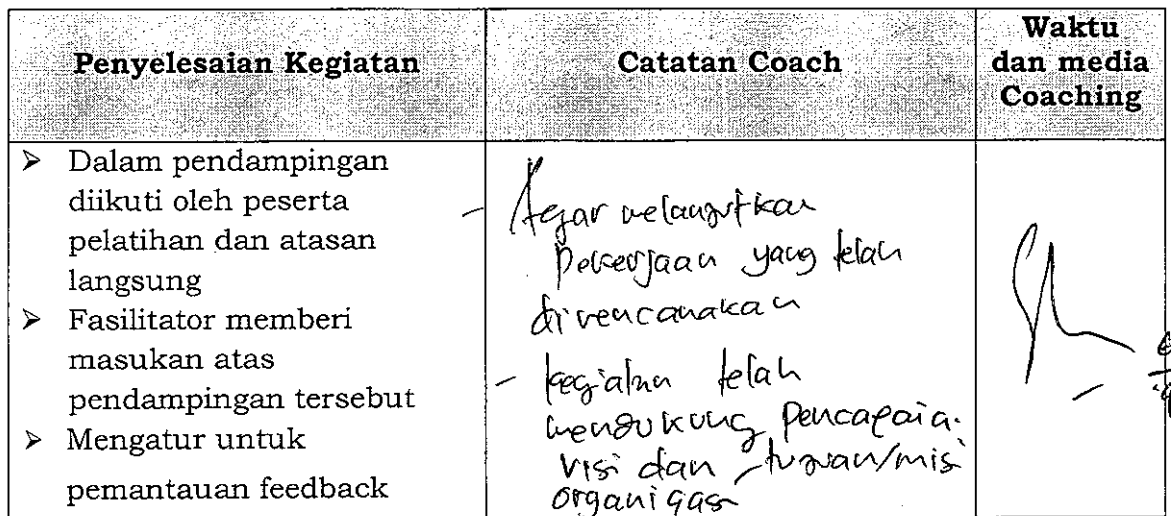 Penyelesaian Kegiatan
Catatan Coach
Waktu
dan media
Coaching
➤ Dalam pendampingan
diikuti oleh peserta
pelatihan dan atasan
langsung
➤ Fasilitator memberi
masukan atas
pendampingan tersebut
➤ Mengatur untuk
pemantauan feedback
- Agar melanjutkan
pekerjaan yang telah
direncanakan
- kegiatan telah
mendukung pencapaia
visi dan tujuan/misi
organisasi